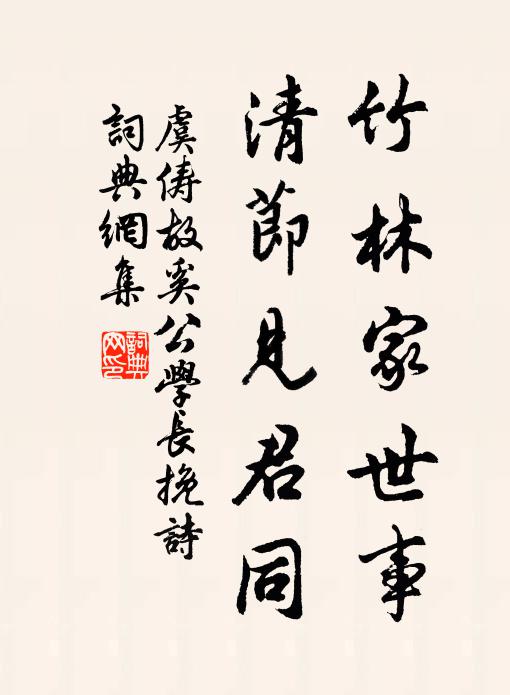 竹林家世事
清節見君同
虞儔故奚公學長挽詩
詞典網集
詞典網印